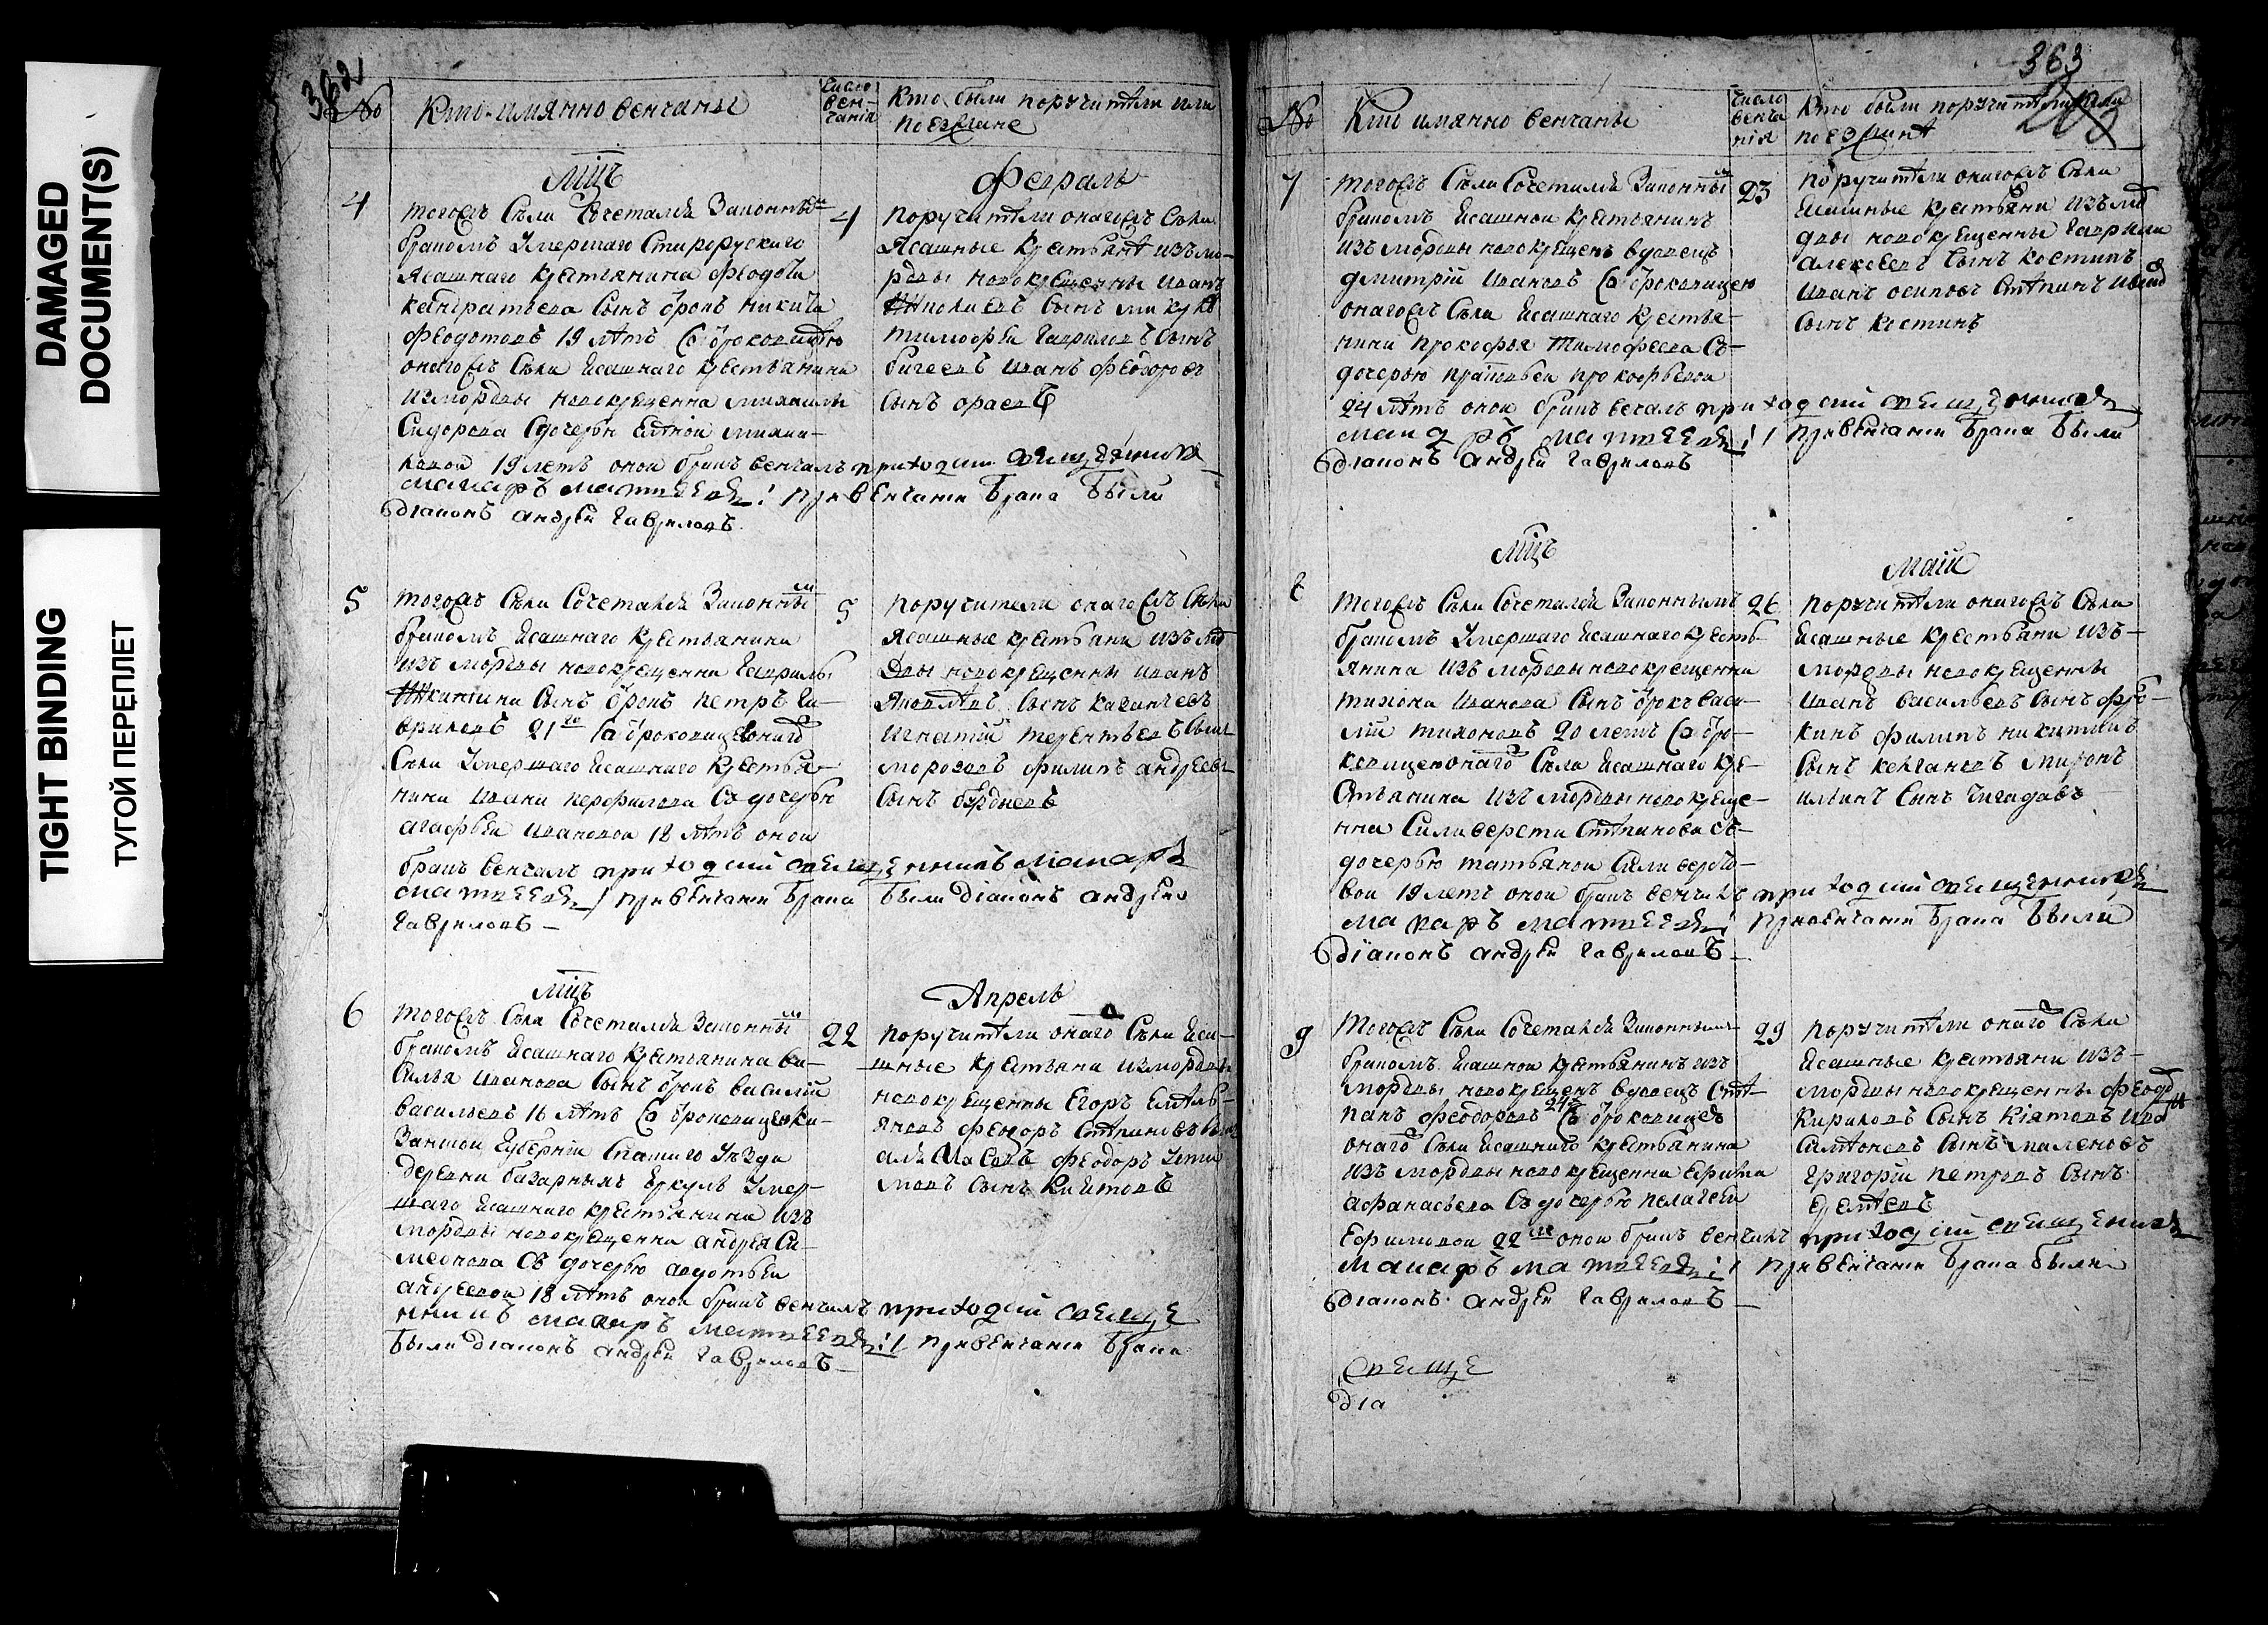 DAMAGED
DOCUMENT(S)
TIGHT BINDING
ТУГОЙ ПЕРЕПЛЕТ
362
№ Кто имянно венчаны
Число
вен-
чанія
Кто были поручители или
поезжане
Мцъ Февраль
4
тогожъ села Сочетался законнымъ
бракомъ умершаго Старорускаго
Ясашнаго крестьянина Феодота
Кандратьева Сынъ брокъ Никита
Федотовъ 19 летъ Со броковицею
онагожъ Села Ясашнаго крестьянина
измордвы новокрещенна Михаилы
Сидорова Сдочерью Еленой Михаи-
ловой 19 летъ оной бракъ венчалъ приходский священникъ
макаръ матвеевъ / привенчании брака были
діаконъ андрей Гавриловъ
4
поручители онагожъ Села
Ясашные крестьяне изъмо-
рдвы новокрещенны Иванъ
Сынъ
тимофей Гавриловъ Сынъ
Иванъ Феодоровъ
Сынъ
5
тогожъ Села Сочетался законнымъ
бракомъ Ясашнаго крестьянина
изъ мордвы новокрещенна Гаврилы
Никитина Сынъ брокъ петръ Га-
вриловъ 21го Со броковицею онагожъ
Села умершаго Ясашнаго крестья-
нина Ивана перфилова Со дочерью
агафьей Ивановой 18 летъ оной
бракъ венчалъ приходский священникъ макаръ
матвеевъ / привенчании брака были діаконъ андрей
Гавриловъ
5
поручители онагожъ Села
Ясашные крестьяна изъ мо-
рдвы новокрещенны Иванъ
Яковлевъ Сынъ
Игнатій терентьевъ Сынъ
морозовъ филипъ андреевъ
Сынъ
Мцъ Апрель
6
тогожъ Села Сочетался законнымъ
бракомъ Ясашнаго крестьянина ва-
силья Иванова Сынъ брокъ василій
васильевъ 16 летъ Со броковицею ка-
занской Губерніи Спаскаго уезда
деревни базарныхъ Еркуль умер-
шаго Ясашнаго крестьянина изъ
мордвы новокрещенна андрея Си-
меонова Съ дочерью авдотьей
андреевой 18 летъ оной бракъ венчалъ приходский священ-
никъ макаръ матвеевъ / привенчании брака
были діаконъ андрей Гавриловъ
22
поручители онаго Села Яса-
шные крестьяна измордвы
новокрещенны Егоръ Емель-
яновъ Федоръ Степановъ Сынъ
Феодоръ
Сынъ
363
203
№ Кто имянно венчаны
Число
венча
нія
Кто были поручители или
поезжане
7
тогожъ Села Сочетался законнымъ
бракомъ Ясашной крестьянинъ
изъ мордвы новокрещенъ вдовецъ
дмитрій Ивановъ Со броковицею
онагожъ Села Ясашнаго крестья-
нина прокофья тимофеева Съ-
дочерью прасковьей прокофьевой
24 летъ оной бракъ венчалъ приходский священникъ
макаръ матвеевъ / привенчании брака были
діаконъ андрей Гавриловъ
23
поручители онагожъ Села
Ясашные крестьяна изъ мо-
рдвы новокрещенны Гаврила
алексеевъ Сынъ костинъ
Иванъ осиповъ
Сынъ костинъ
Мцъ Маій
8
тогожъ Села Сочетался законнымъ
бракомъ умершаго Ясашнаго кресть-
янина изъ мордвы новокрещенна
тихона Иванова Сынъ брокъ васи-
лій тихоновъ 20 летъ Со бро-
ковицею онаго Села Ясашнаго кре-
стьянина изъ мордвы новокреще-
нна Силиверста Степанова Съ-
дочерью татьяной Силиверсто-
вой 19 летъ оной бракъ венчалъ приходский священникъ
макаръ матвеевъ / привенчании брака были
діаконъ андрей Гавриловъ
26
поручители онагожъ Села
Ясашные крестьяна изъ-
мордвы новокрещенны
Иванъ васильевъ Сынъ
филипъ никитинъ
Сынъ миронъ
ильинъ Сынъ
9
тогожъ Села Сочетался законнымъ
бракомъ Ясашной крестьянинъ изъ
мордвы новокрещенъ вдовецъ Сте-
панъ Феодоровъ 24 Со броковицею
онаго Села Ясашнаго крестьянина
изъ мордвы новокрещенна Ефима
афанасьева Съ дочерью пелагеей
Ефимовой 22 оной бракъ венчалъ приходский священникъ
макаръ матвеевъ / привенчании брака были
діаконъ андрей Гавриловъ
29
поручители онаго Села
Ясашные крестьяна изъ-
мордвы новокрещенны Феодоръ
кириловъ Сынъ Иванъ
Сынъ
Григорій петровъ Сынъ
Свяще
діа